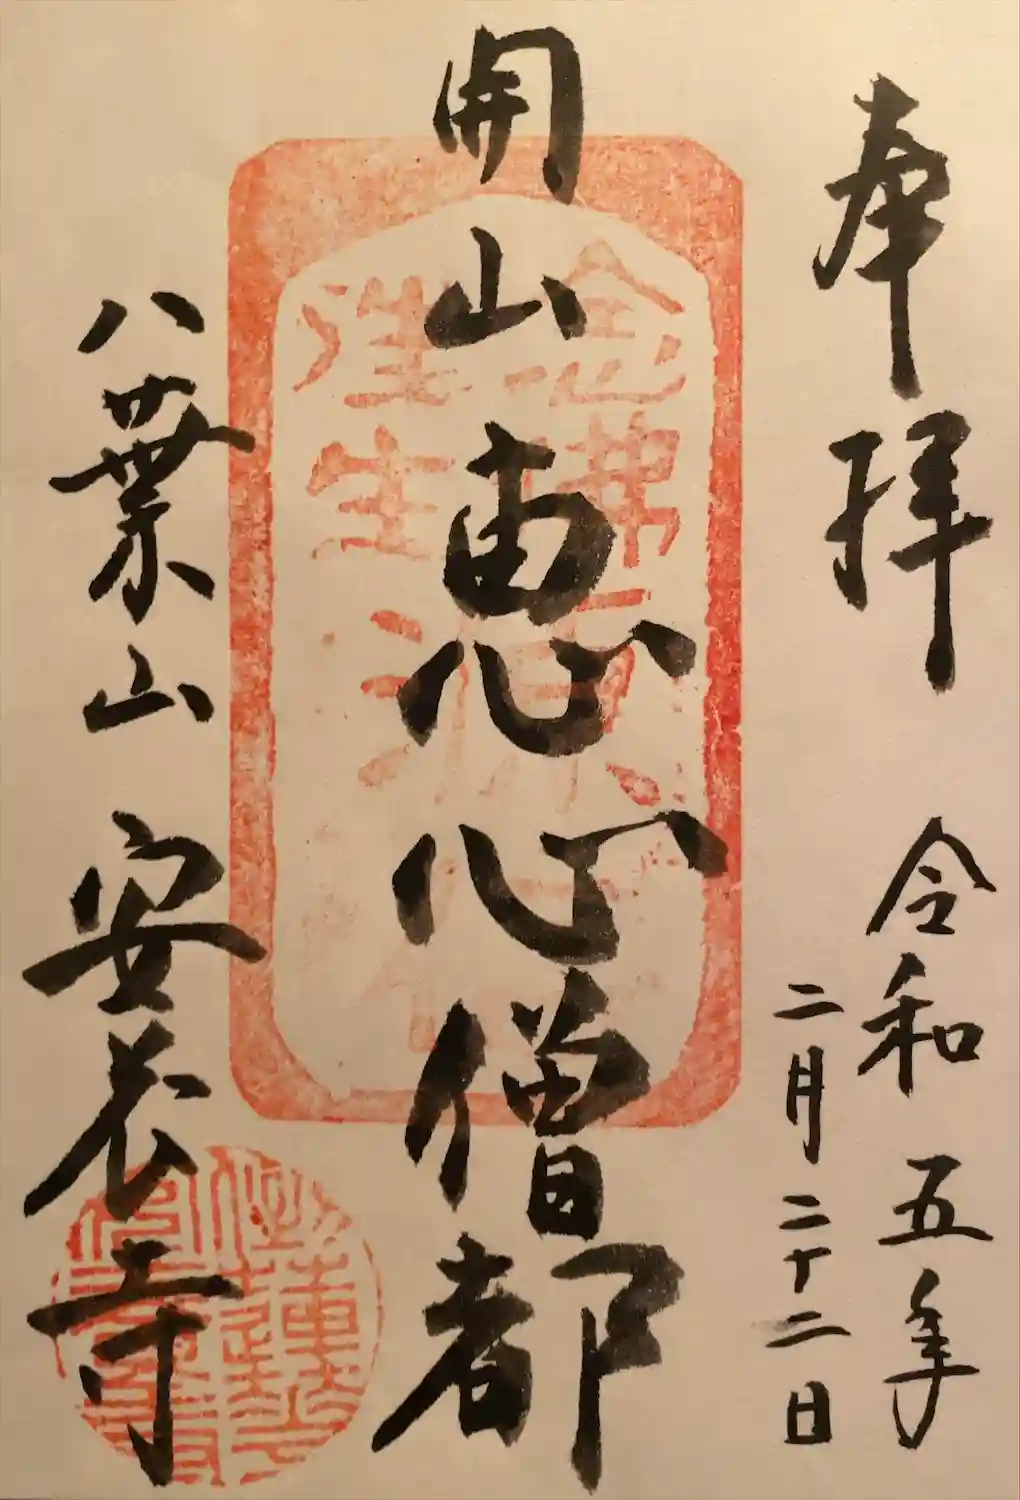 奉拝
令和五年
二月二十二日
開山恵心僧都
念佛
往生
八葉山安養寺